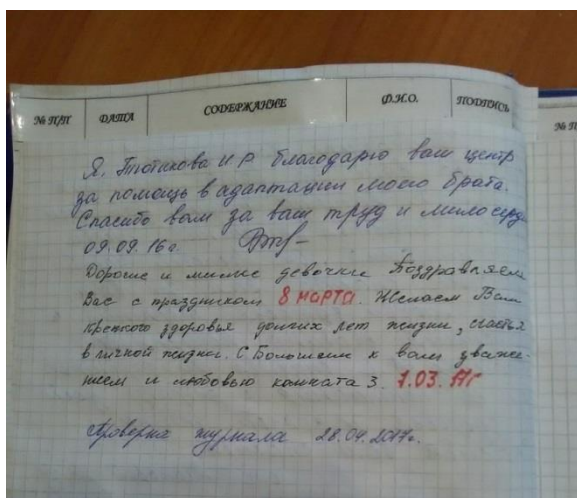 № П/П ДАТА СОДЕРЖАНИЕ Ф.И.О. ПОДПИСЬ
№ П
Я, Тютикова И Р благодарю ваш центр
за помощь в адаптации моего брата.
Спасибо вам за ваш труд и милосерд
09.09.16г.
Дорогие и милые девочки Поздравляем
Вас с праздником 8 марта. Желаем Вам
крепкого здоровья долгих лет жизни, счастья
в личной жизни. С Большим к вам уваже-
нием и любовью комната 3. 7.03.17г
Проверка журнала 28.04.2017г.